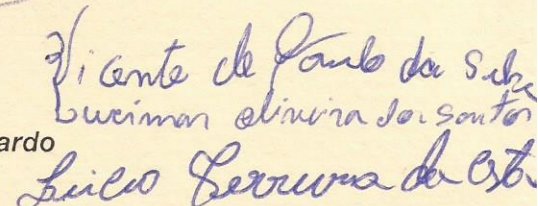 Vicente de Paulo da Silva
Lucimar oliveira dos santos
ardo
Ferreira da Costa